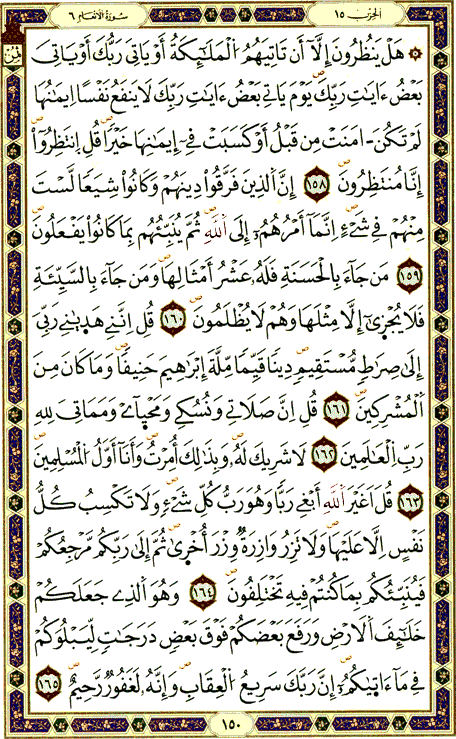 الحزب ١٥
سورة الانعام ٦
ثمن
۞ هَلْ يَنظُرُونَ إِلَّآ أَن تَاتِيَهُمُ الْمَلَٰٓئِكَةُ أَوْ يَاتِيَ رَبُّكَ أَوْ يَاتِيَ
بَعْضُ ءَايَٰتِ رَبِّكَ يَوْمَ يَاتِي بَعْضُ ءَايَٰتِ رَبِّكَ لَا يَنفَعُ نَفْسًا اِيمَٰنُهَا
لَمْ تَكُنَ ـ امَنَتْ مِن قَبْلُ أَوْ كَسَبَتْ فِےٓ إِيمَٰنِهَا خَيْرًا قُلِ اِنتَظِرُوٓاْ
إِنَّا مُنتَظِرُونَ ١٥٨ إِنَّ اَلذِينَ فَرَّقُواْ دِينَهُمْ وَكَانُواْ شِيَعًا لَّسْتَ
مِنْهُمْ فِے شَےْءٍ اِنَّمَآ أَمْرُهُمُۥٓ إِلَى اَللَّهِ ثُمَّ يُنَبِّئُهُم بِمَا كَانُواْ يَفْعَلُونَ
١٥٩ مَن جَآءَ بِالْحَسَنَةِ فَلَهُۥ عَشْرُ أَمْثَالِهَا وَمَن جَآءَ بِالسَّيِّئَةِ
فَلَا يُجْزَىٰٓ إِلَّا مِثْلَهَا وَهُمْ لَا يُظْلَمُونَ ١٦٠ قُلِ اِنَّنِے هَدَىٰنِے رَبِّيَ
إِلَىٰ صِرَٰطٍ مُّسْتَقِيمٍ دِينًا قَيِّمًا مِّلَّةَ إِبْرَٰهِيمَ حَنِيفًا وَمَا كَانَ مِنَ
اَلْمُشْرِكِينَ ١٦١ قُلِ اِنَّ صَلَاتِے وَنُسُكِے وَمَحْيَآےْ وَمَمَاتِيَ لِلهِ
رَبِّ اِلْعَٰلَمِينَ ١٦٢ لَا شَرِيكَ لَهُۥ وَبِذَٰلِكَ أُمِرْتُ وَأَنَآ أَوَّلُ اُلْمُسْلِمِينَ
١٦٣ قُلَ اَغَيْرَ اَللَّهِ أَبْغِے رَبًّا وَهُوَ رَبُّ كُلِّ شَےْءٍ وَلَا تَكْسِبُ كُلُّ
نَفْسٍ اِلَّا عَلَيْهَا وَلَا تَزِرُ وَازِرَةٌ وِزْرَ أُخْرَىٰ ثُمَّ إِلَىٰ رَبِّكُم مَّرْجِعُكُمْ
فَيُنَبِّئُكُم بِمَا كُنتُمْ فِيهِ تَخْتَلِفُونَ ١٦٤ وَهُوَ اَلذِے جَعَلَكُمْ
خَلَٰٓئِفَ اَلَارْضِ وَرَفَعَ بَعْضَكُمْ فَوْقَ بَعْضٍ دَرَجَٰتٍ لِّيَبْلُوَكُمْ
فِے مَآ ءَاتَىٰكُمُۥٓ إِنَّ رَبَّكَ سَرِيعُ اُلْعِقَابِ وَإِنَّهُۥ لَغَفُورٌ رَّحِيمٌ ١٦٥
١٥٠